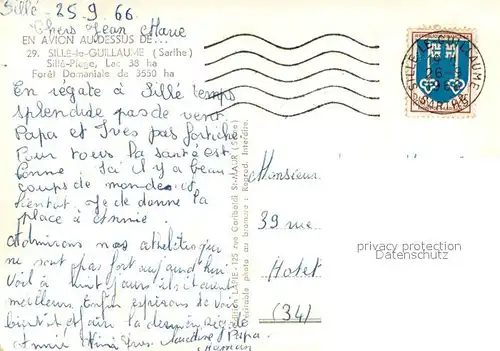 Sillé - 25.9.66
Chers Jean Marie
EN AVION AU-DESSUS DE...
29. SILLÉ-le-GUILLAUME (Sarthe)
Sillé-Plage, Lac 38 ha
Forêt Domaniale de 3550 ha
En régate à Sillé temps
splendide pas de vent
Papa et Yves pas fortiche
Pour tous la santé est
bonne. Ici il y a beau
coups de monde et
bientôt. Je donne la
place à Annie.
Admirons nos athlètes qui
ne sont pas fort aujourd'hui
Voilà huit jours ils étaient
meilleurs. Enfin espérons de voir
bientôt et faire la dernière régate
Annie Yves Papa
Maman
Edition LAPIE - 125 rue Garibaldi St-MAUR (Seine)
au bromure - Reprod. Interdite.
SILLÉ LE GUILLAUME
SARTHE
Monsieur
39 rue
Hotel
(34)
privacy protection
Datenschutz